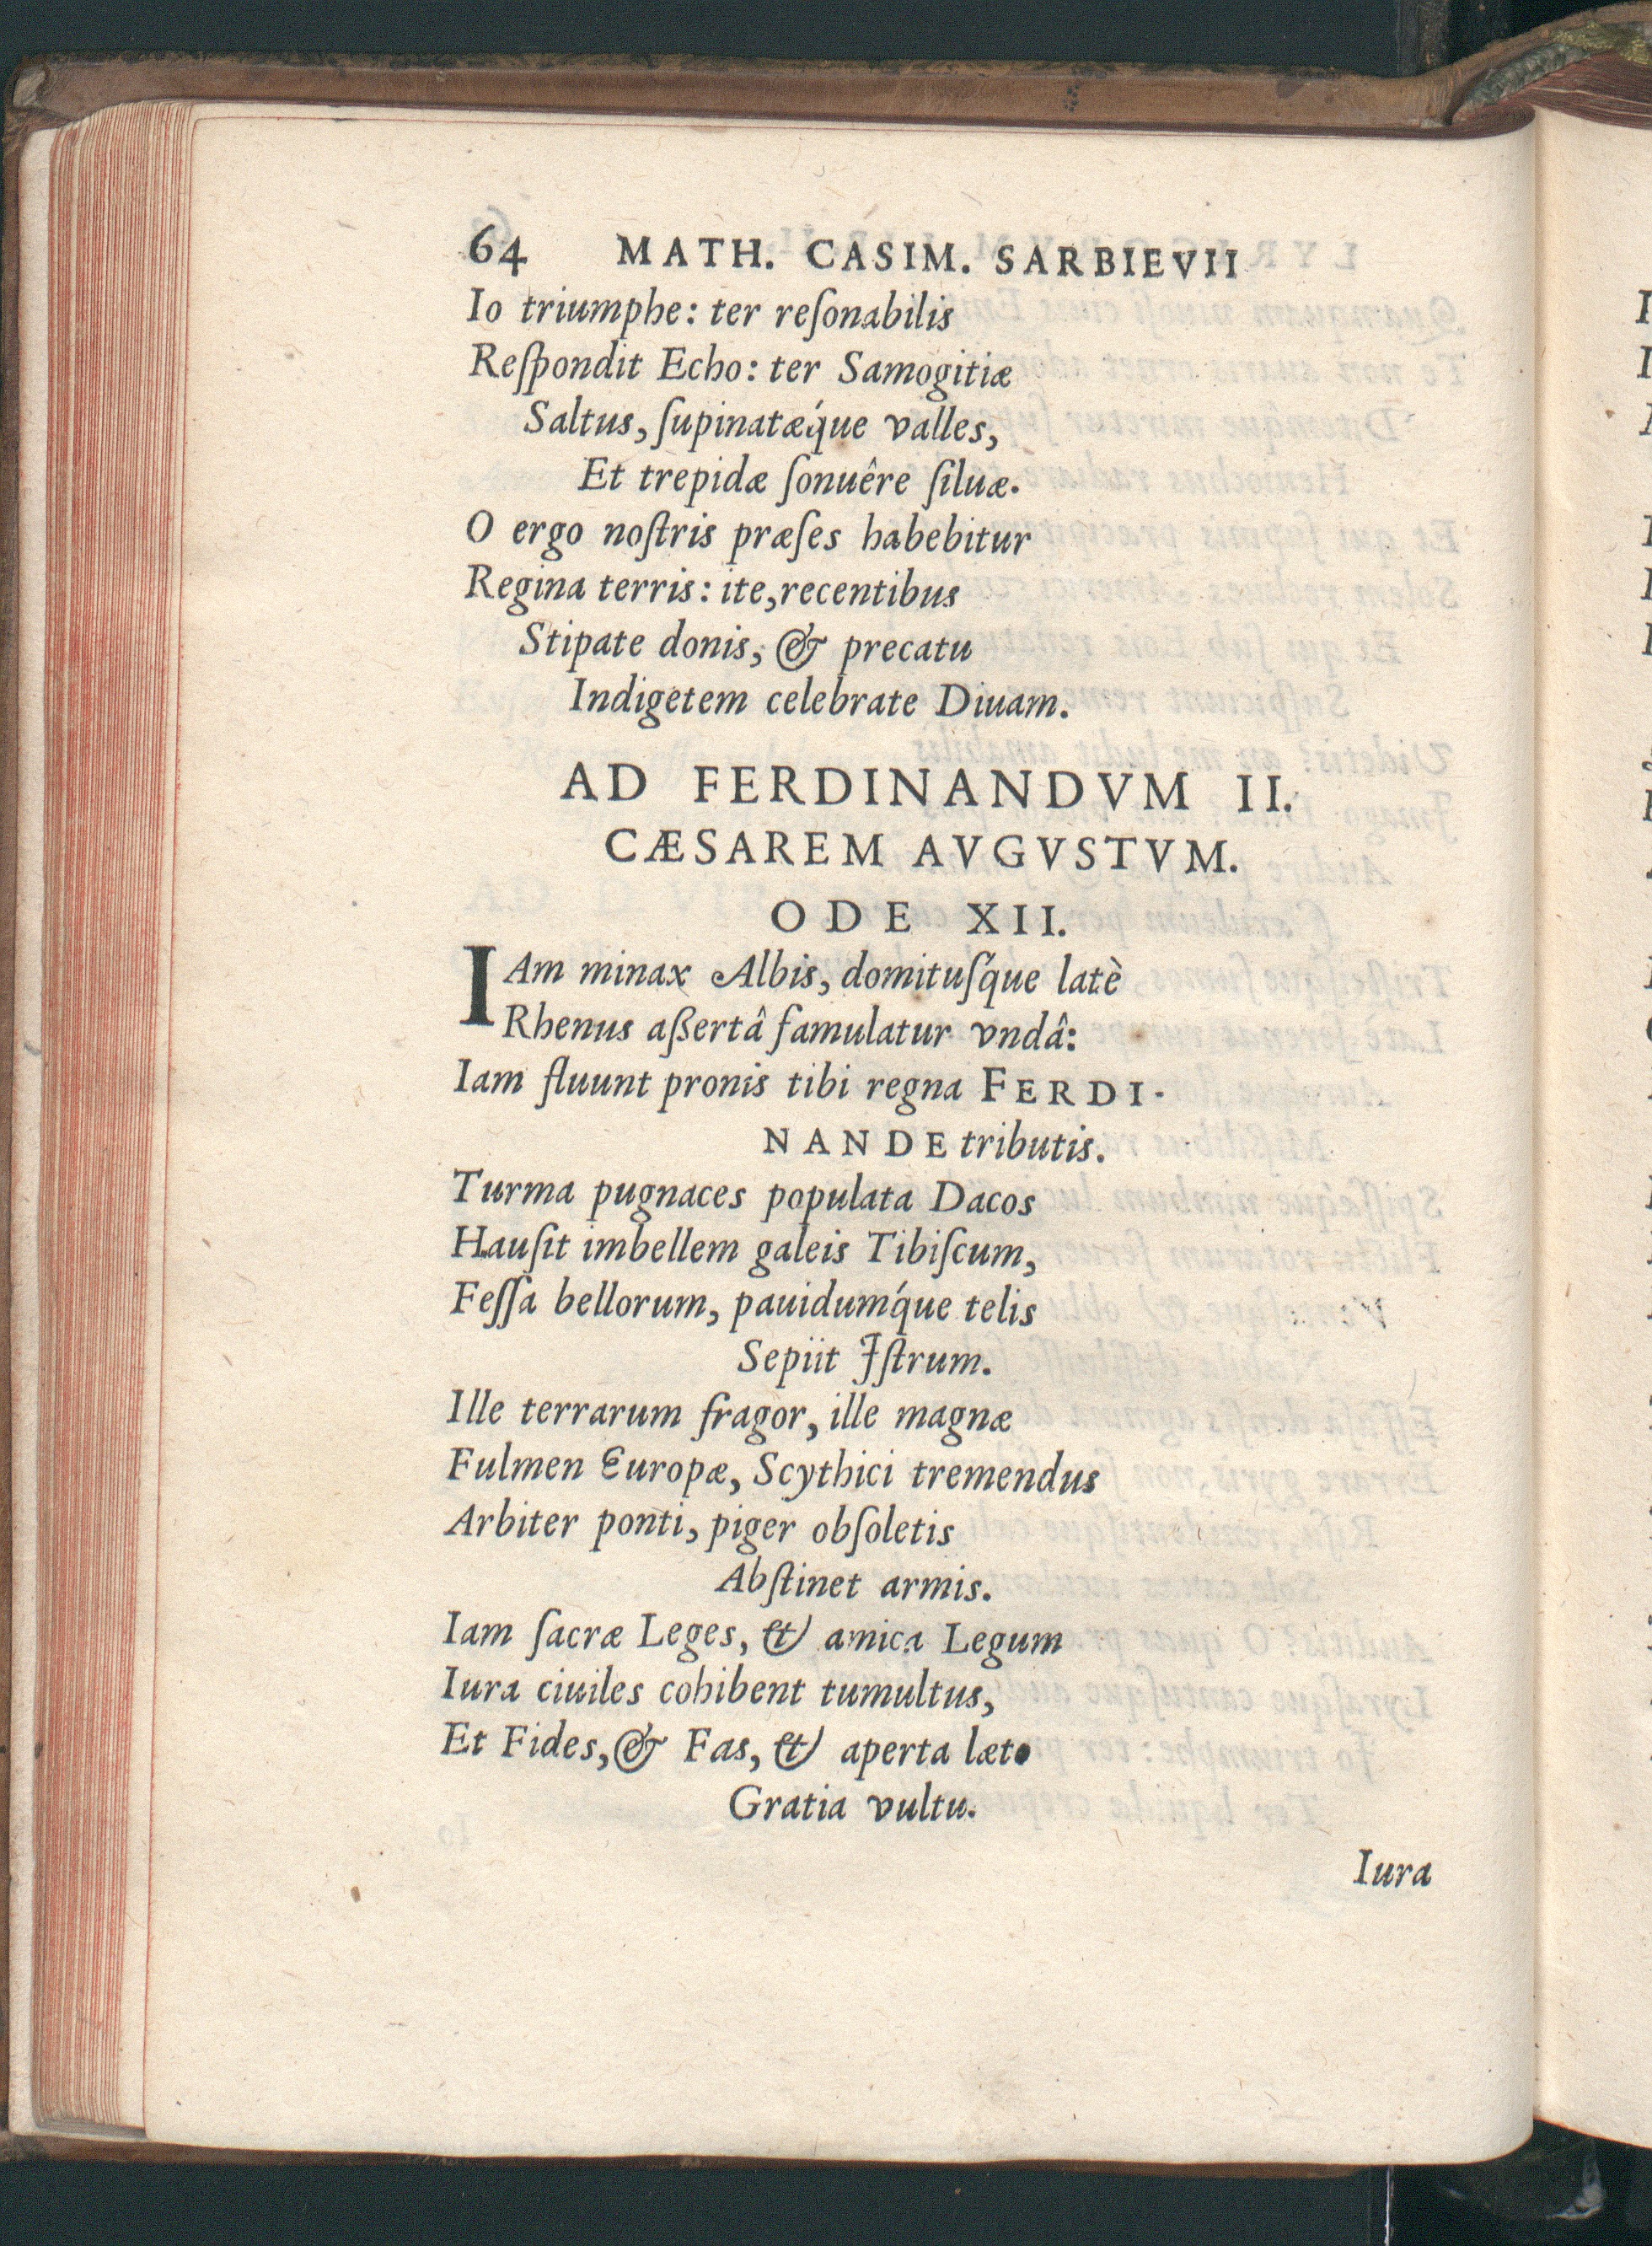 64 MATH. CASIM. SARBIEVII
Io triumphe: ter reſonabilis
Reſpondit Echo: ter Samogitiæ
Saltus, ſupinatæq́ue valles,
Et trepidæ ſonuêre ſiluæ.
O ergo noſtris præſes habebitur
Regina terris: ite, recentibus
Stipate donis, & precatu
Indigetem celebrate Diuam.
AD FERDINANDVM II.
CÆSAREM AVGVSTVM.
ODE XII.
IAm minax Albis, domituſq́ue latè
Rhenus aßertâ famulatur vndâ:
Iam fluunt pronis tibi regna FERDI-
NANDE tributis.
Turma pugnaces populata Dacos
Hauſit imbellem galeis Tibiſcum,
Feſſa bellorum, pauidumq́ue telis
Sepiit Iſtrum.
Ille terrarum fragor, ille magnæ
Fulmen Europæ, Scythici tremendus
Arbiter ponti, piger obſoletis
Abſtinet armis.
Iam ſacræ Leges, & amica Legum
Iura ciuiles cohibent tumultus,
Et Fides, & Fas, & aperta læto
Gratia vultu.
Iura